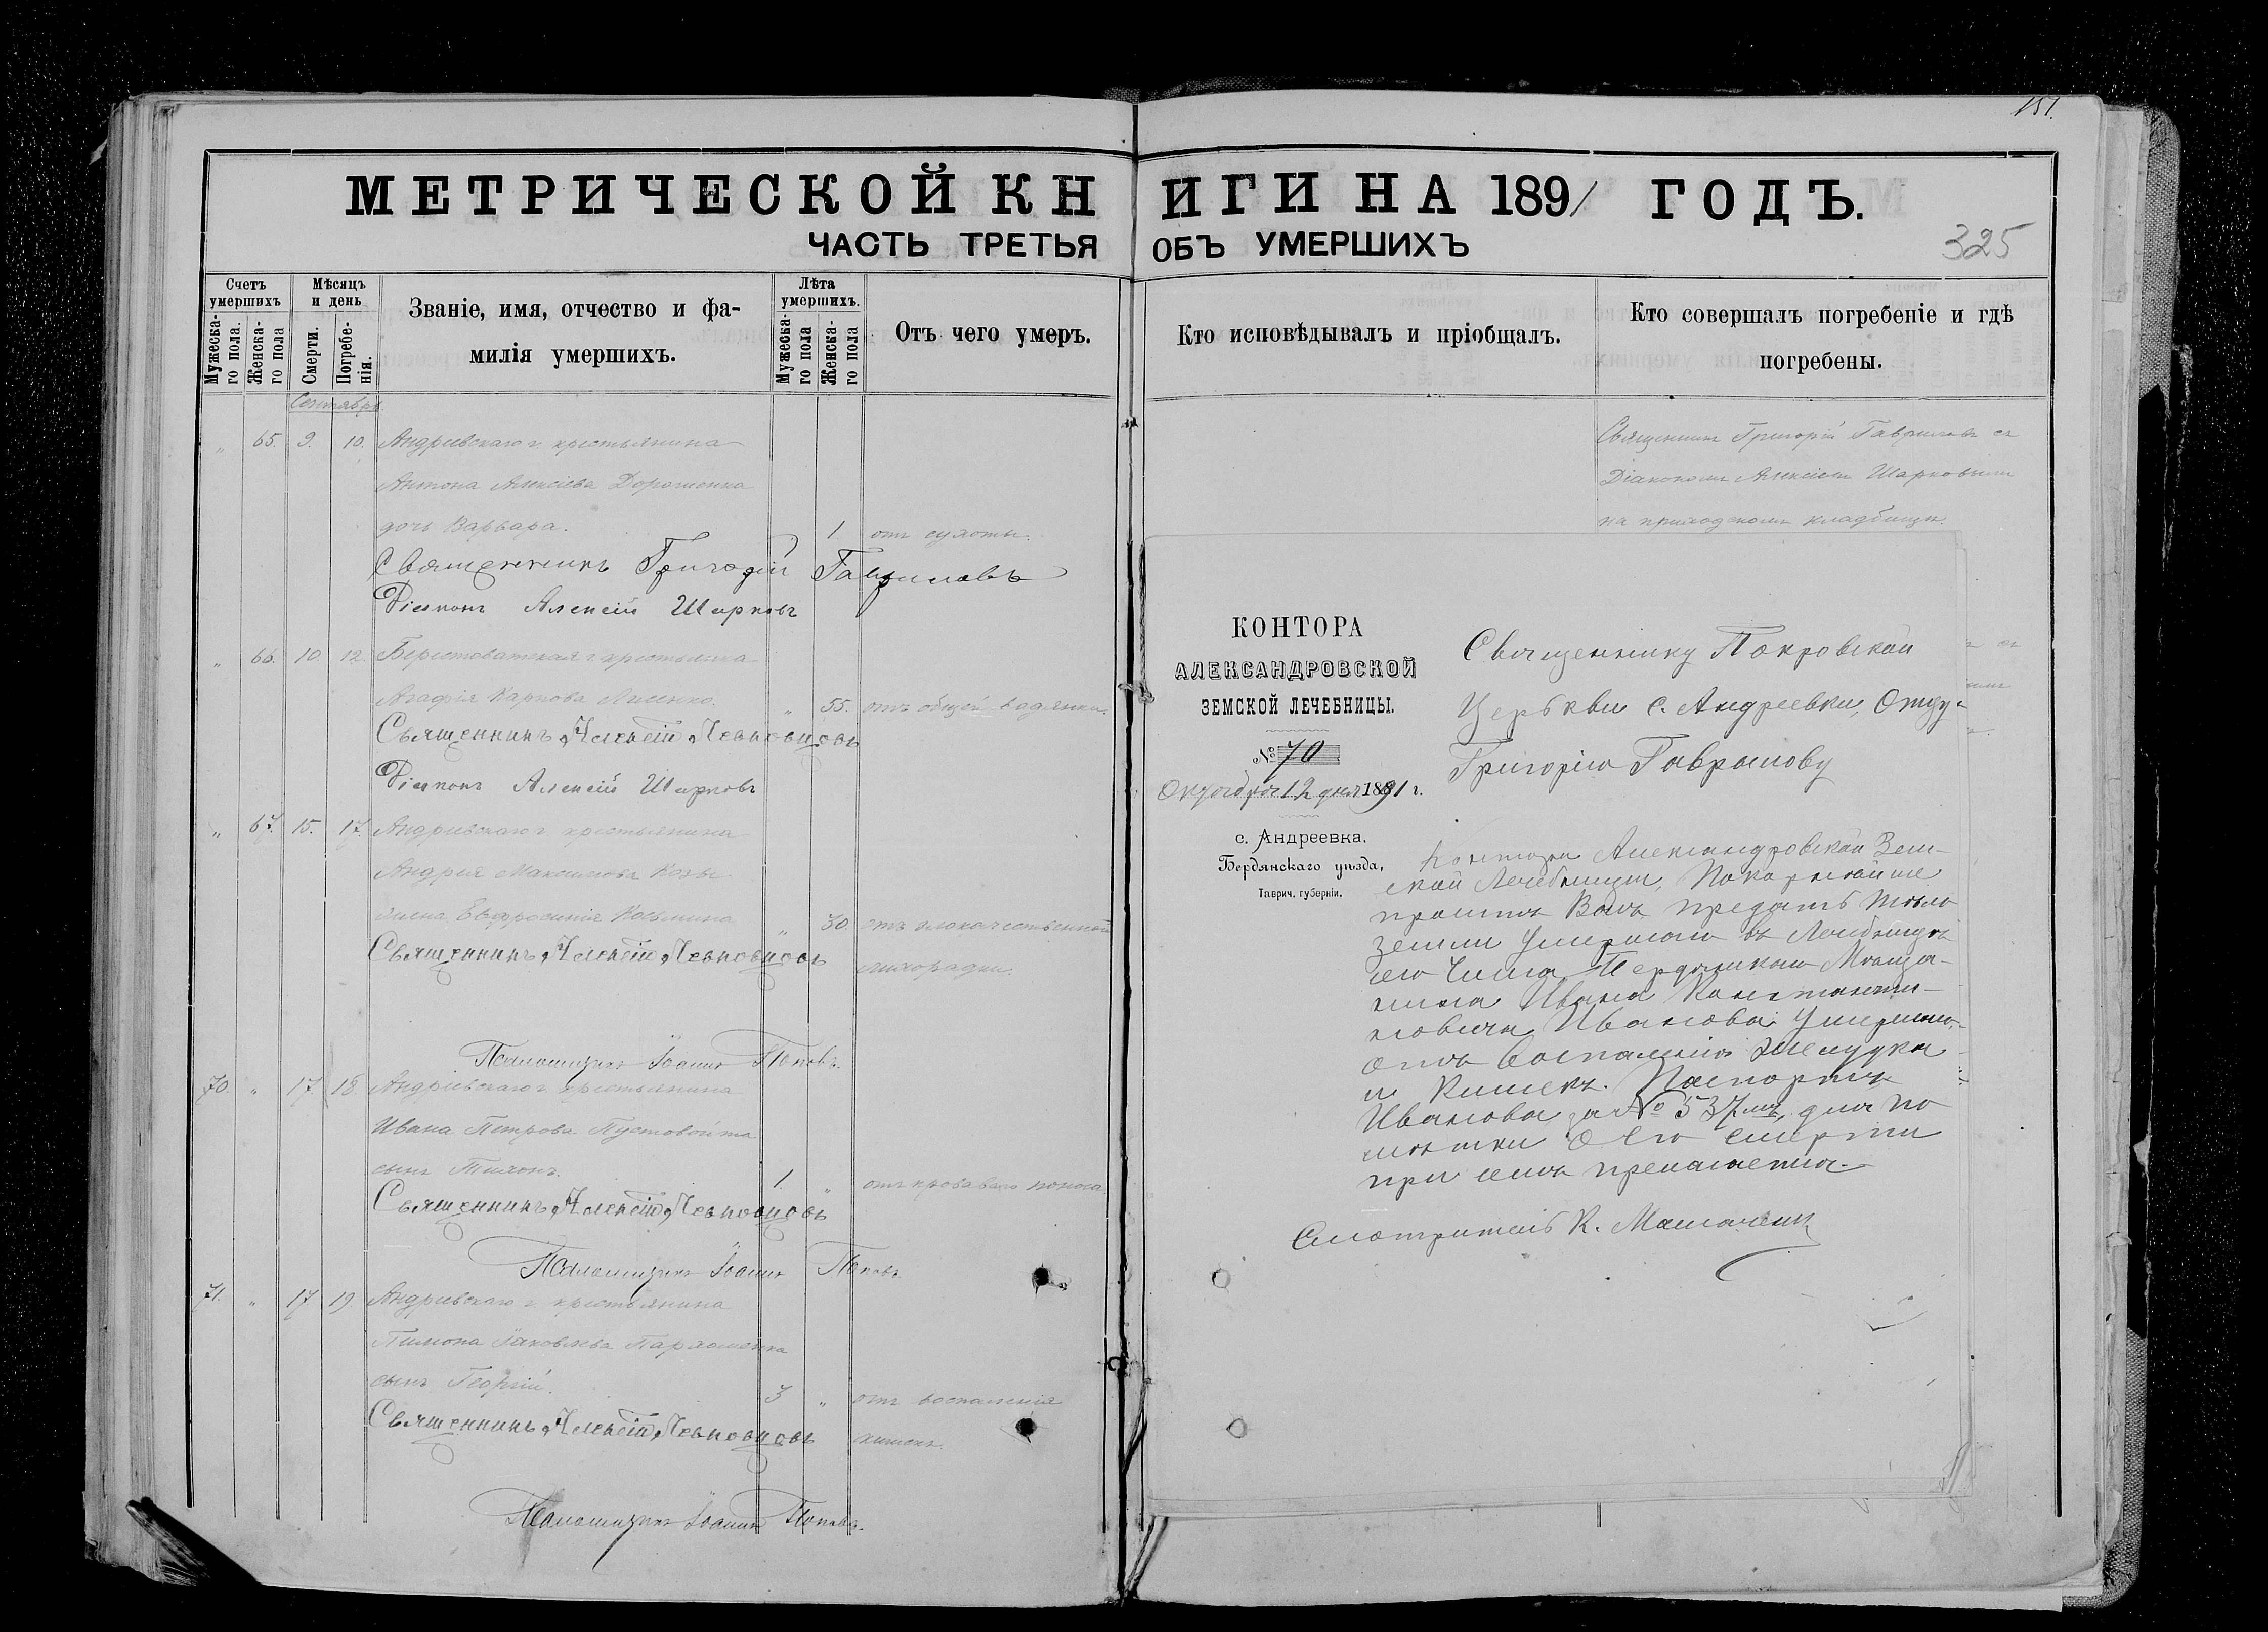 151.
МЕТРИЧЕСКОЙ КНИГИ НА 1891 ГОДЪ.
ЧАСТЬ ТРЕТЬЯ ОБЪ УМЕРШИХЪ
325
Счетъ умершихъ
Мужеска-го пола.
Женска-го пола
Мѣсяцъ и день
Смерти.
Погребе-нія.
Званіе, имя, отчество и фа-
милія умершихъ.
Лѣта умершихъ.
Мужеска-го пола
Женска-го пола
Отъ чего умеръ.
Кто исповѣдывалъ и пріобщалъ.
Кто совершалъ погребеніе и гдѣ
погребены.
Сентябрь
„ 65. 9. 10. Андриевскаго г. крестьянина
Антона Алексіева Дорошенка
дочь Варвара. 1 отъ сухоты.
Священникъ Григорій Гавриловъ съ
Діакономъ Алексіемъ Шарковымъ
на приходскомъ кладбищѣ.
Священникъ Григорій Гавриловъ
Діаконъ Алексій Шарковъ
„ 66. 10. 12. Берестоватская г. крестьянка
Агафія Карпова Лисенко. „ 55. отъ общей водянки.
Священникъ Алексій
Діаконъ Алексій Шарковъ
„ 67. 15. 17. Андриевскаго г. крестьянина
Андрея Максимова Козы
жена Евфросинія Косьмина „ 30. отъ злокачественной
лихорадки.
Священникъ Алексій
Псаломщикъ Іоаннъ Поповъ.
70. „ 17 18 Андріевскаго г. крестьянина
Ивана Петрова Пустовойта
сынъ Тихонъ. 1. „ отъ кроваваго поноса
Священникъ Алексій
Псаломщикъ Іоаннъ Поповъ
71. „ 17 19. Андриевскаго г. крестьянина
Пимона Іаковлева Пархоменка
сынъ Георгій. 3 „ отъ воспаленія
кишекъ.
Священникъ Алексій
Псаломщикъ Іоаннъ Поповъ.
КОНТОРА
АЛЕКСАНДРОВСКОЙ
ЗЕМСКОЙ ЛЕЧЕБНИЦЫ.
№ 70
Октября 12 дня 1891 г.
с. Андреевка.
Бердянскаго уѣзда,
Таврич. губерніи.
Священнику Покровской
Церкви с. Андреевки, Отцу
Григорію Гаврилову
Контора Александровской Зем-
ской Лечебницы, Покорнѣйше
проситъ Васъ предать тѣло
земли Умершаго въ Лечебницѣ
сего Числа Бердянскаго Мѣща-
нина Ивана Константи-
новича Иванова Умершаго
отъ Воспаленія Желудка
и Кишекъ. Паспортъ
Иванова за № 537мъ, для по
мѣтки о Его смерти
при семъ прилагается.
Смотритель К.